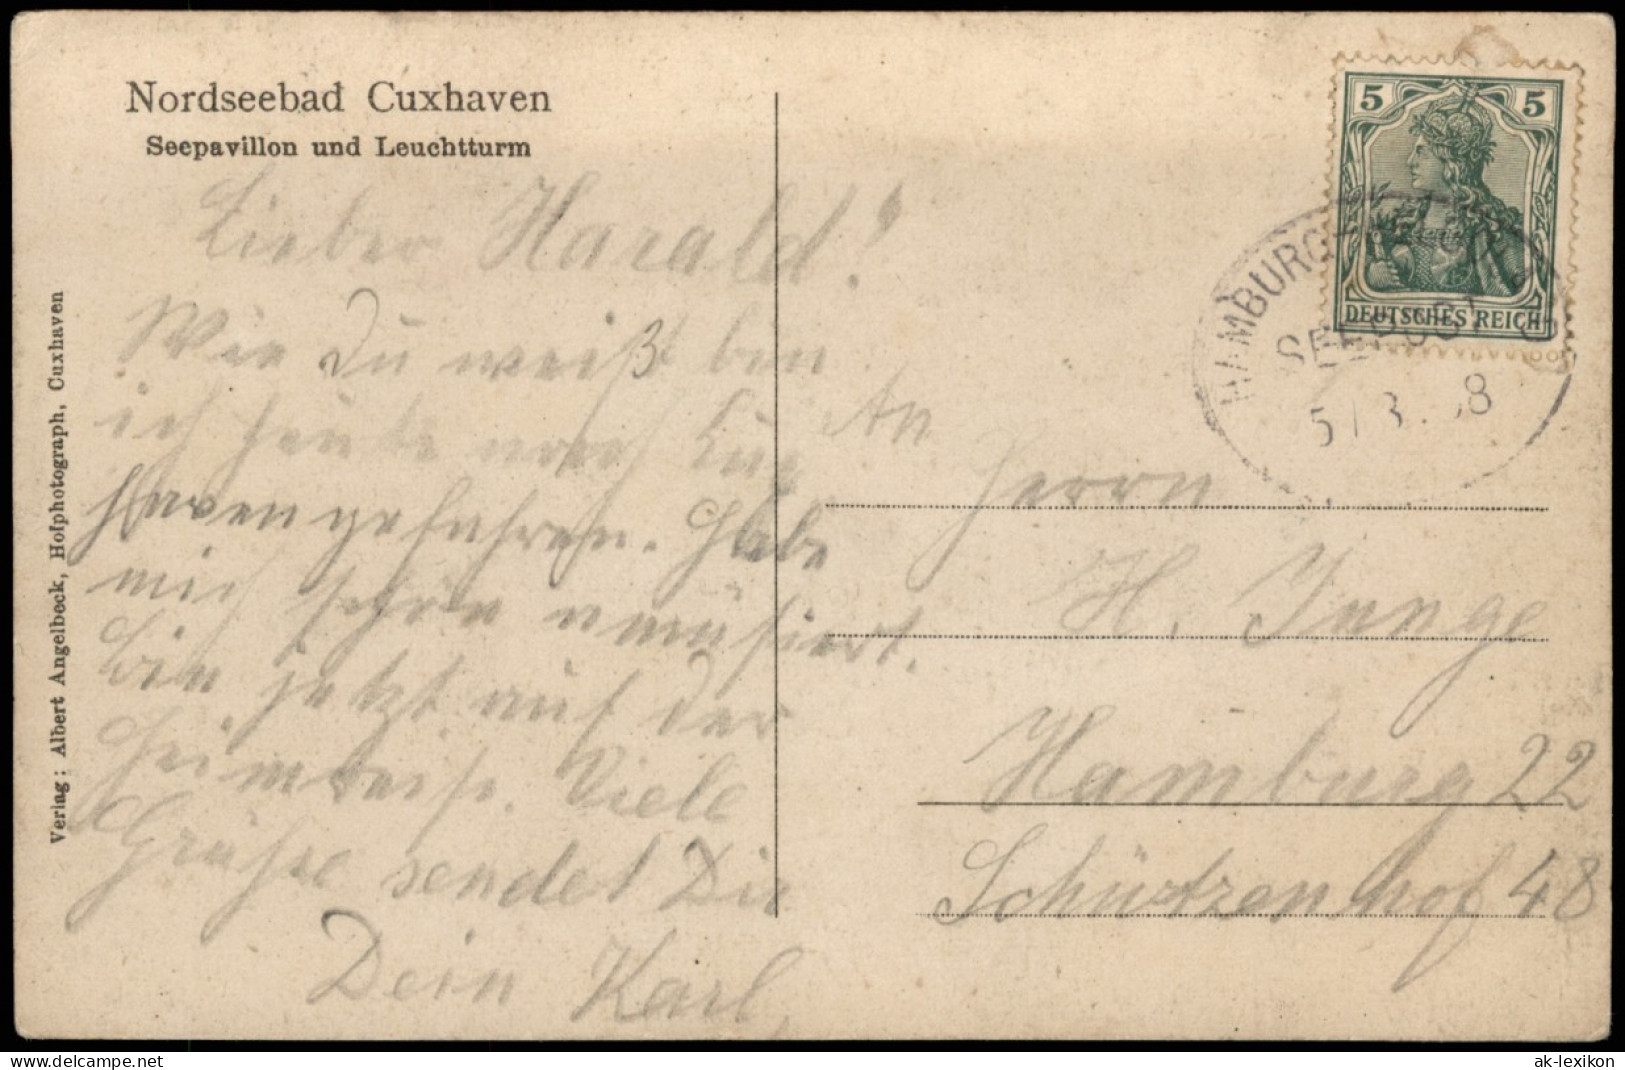 Nordseebad Cuxhaven
Seepavillon und Leuchtturm
Lieber Harald!
Wie Du weißt bin
ich heute nach Cux
haven gefahren. Habe
mich schön amüsiert.
Bin jetzt auf der
Heimreise. Viele
Grüße sendet Dir
Dein Karl,
Verlag: Albert Angelbeck, Hofphotograph, Cuxhaven
5 5
DEUTSCHES REICH
HAMBURG
SEEPOST
An
Herrn
H. Junge
Hamburg 22
Schützenhof 48
delcampe.net
ak-lexikon